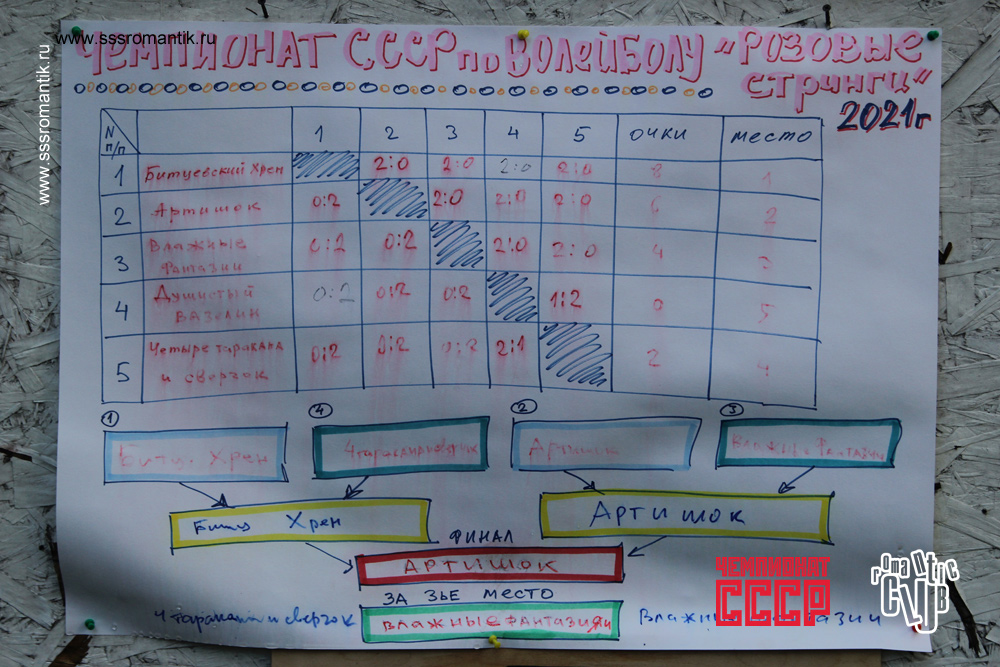 www.sssromantik.ru
www.sssromantik.ru
ЧЕМПИОНАТ СССР по ВОЛЕЙБОЛУ "РОЗОВЫЕ
стринги"
2021г
N п/п 1 2 3 4 5 очки место
1 Битцевский Хрен 2:0 2:0 2:0 2:0 8 1
2 Артишок 0:2 2:0 2:0 2:0 6 2
3 Влажные фантазии 0:2 0:2 2:0 2:0 4 3
4 Душистый вазелин 0:2 0:2 0:2 1:2 0 5
5 Четыре таракана и сверчок 0:2 0:2 0:2 2:1 2 4
1 4 2 3
Битц. Хрен Артишок Влажн е Фантазии
Битц Хрен Артишок
ФИНАЛ
АРТИШОК
ЗА 3ЬЕ МЕСТО
4 таракана и сверчок ВЛАЖНЫЕ ФАНТАЗИИ Влажные фантазии
ЧЕМПИОНАТ
СССР
romantic
CLUB